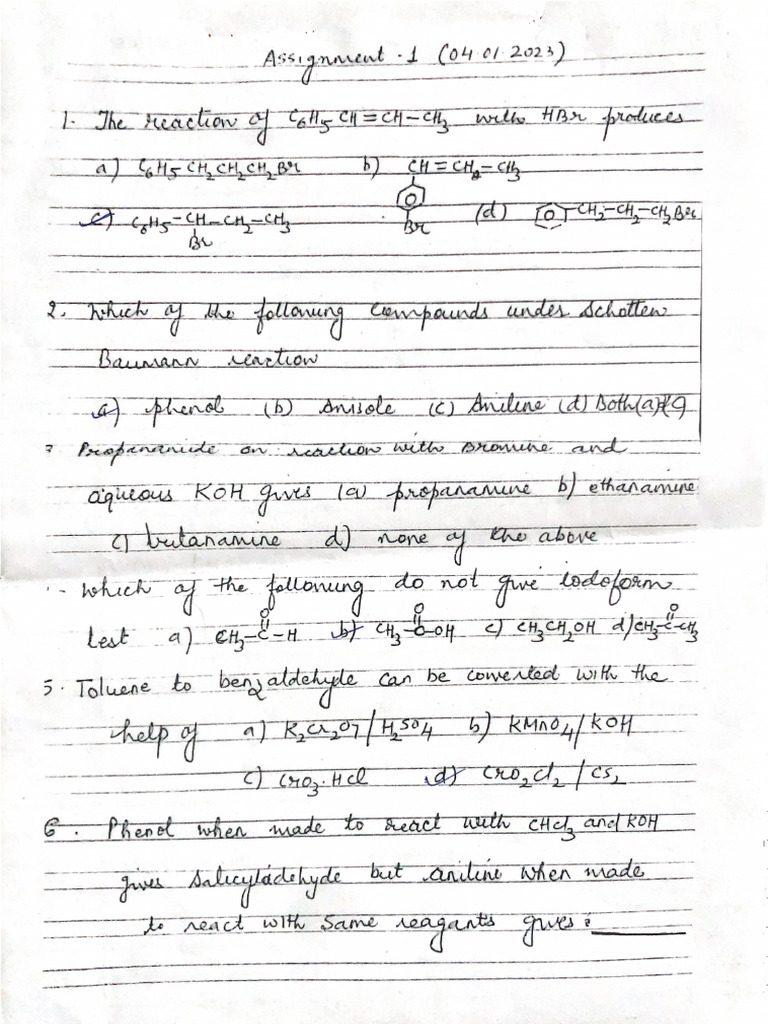 Assignment-1 (04.01.2023)
1. The reaction of C6H5CH=CH-CH3 with HBr produces
a) C6H5CH2CH2CH2Br b) CH=CH2-CH3
Br
c) C6H5-CH-CH2-CH3 (d) CH2-CH2-CH2Br
Br
2. Which of the following compounds under Schotten
Baumann reaction
a) phenol (b) Anisole (c) Aniline (d) Both (a)&(c)
Propanamide on reaction with Bromine and
aqueous KOH gives (a) propanamine b) ethanamine
c) butanamine d) none of the above
Which of the following do not give iodoform
O O O
test a) CH3-C-H b) CH3-C-OH c) CH3CH2OH d) CH3-C-CH3
5. Toluene to benzaldehyde can be converted with the
help of a) K2Cr2O7/H2SO4 b) KMnO4/KOH
c) CrO3.HCl d) CrO2Cl2/CS2
6. Phenol when made to react with CHCl3 and KOH
gives salicyladehyde but aniline when made
to react with same reagants gives: ______